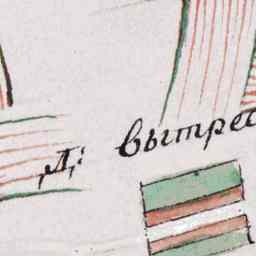 Д: вытрес